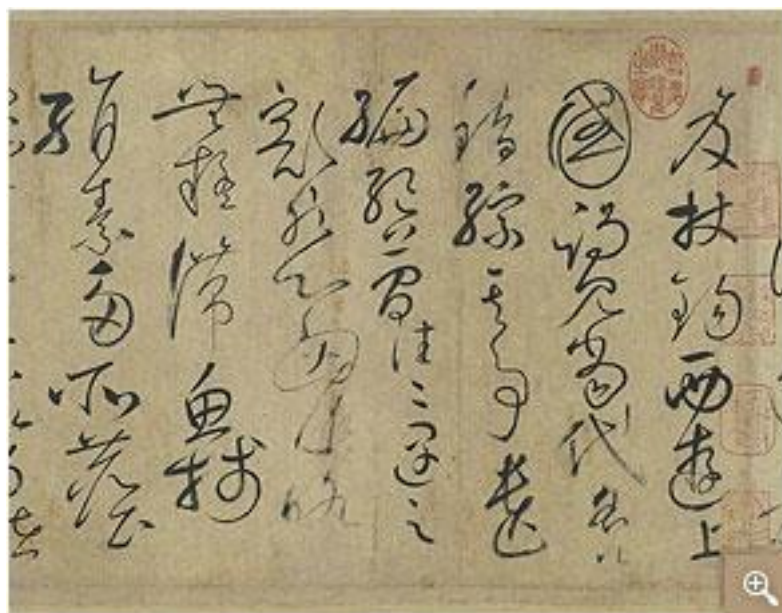 笈杖錫西遊上
國謁見當代名公
錯綜其事遺
編絕簡往〻遇之
豁然心胸略
無疑滯魚牋
絹素多所塵點